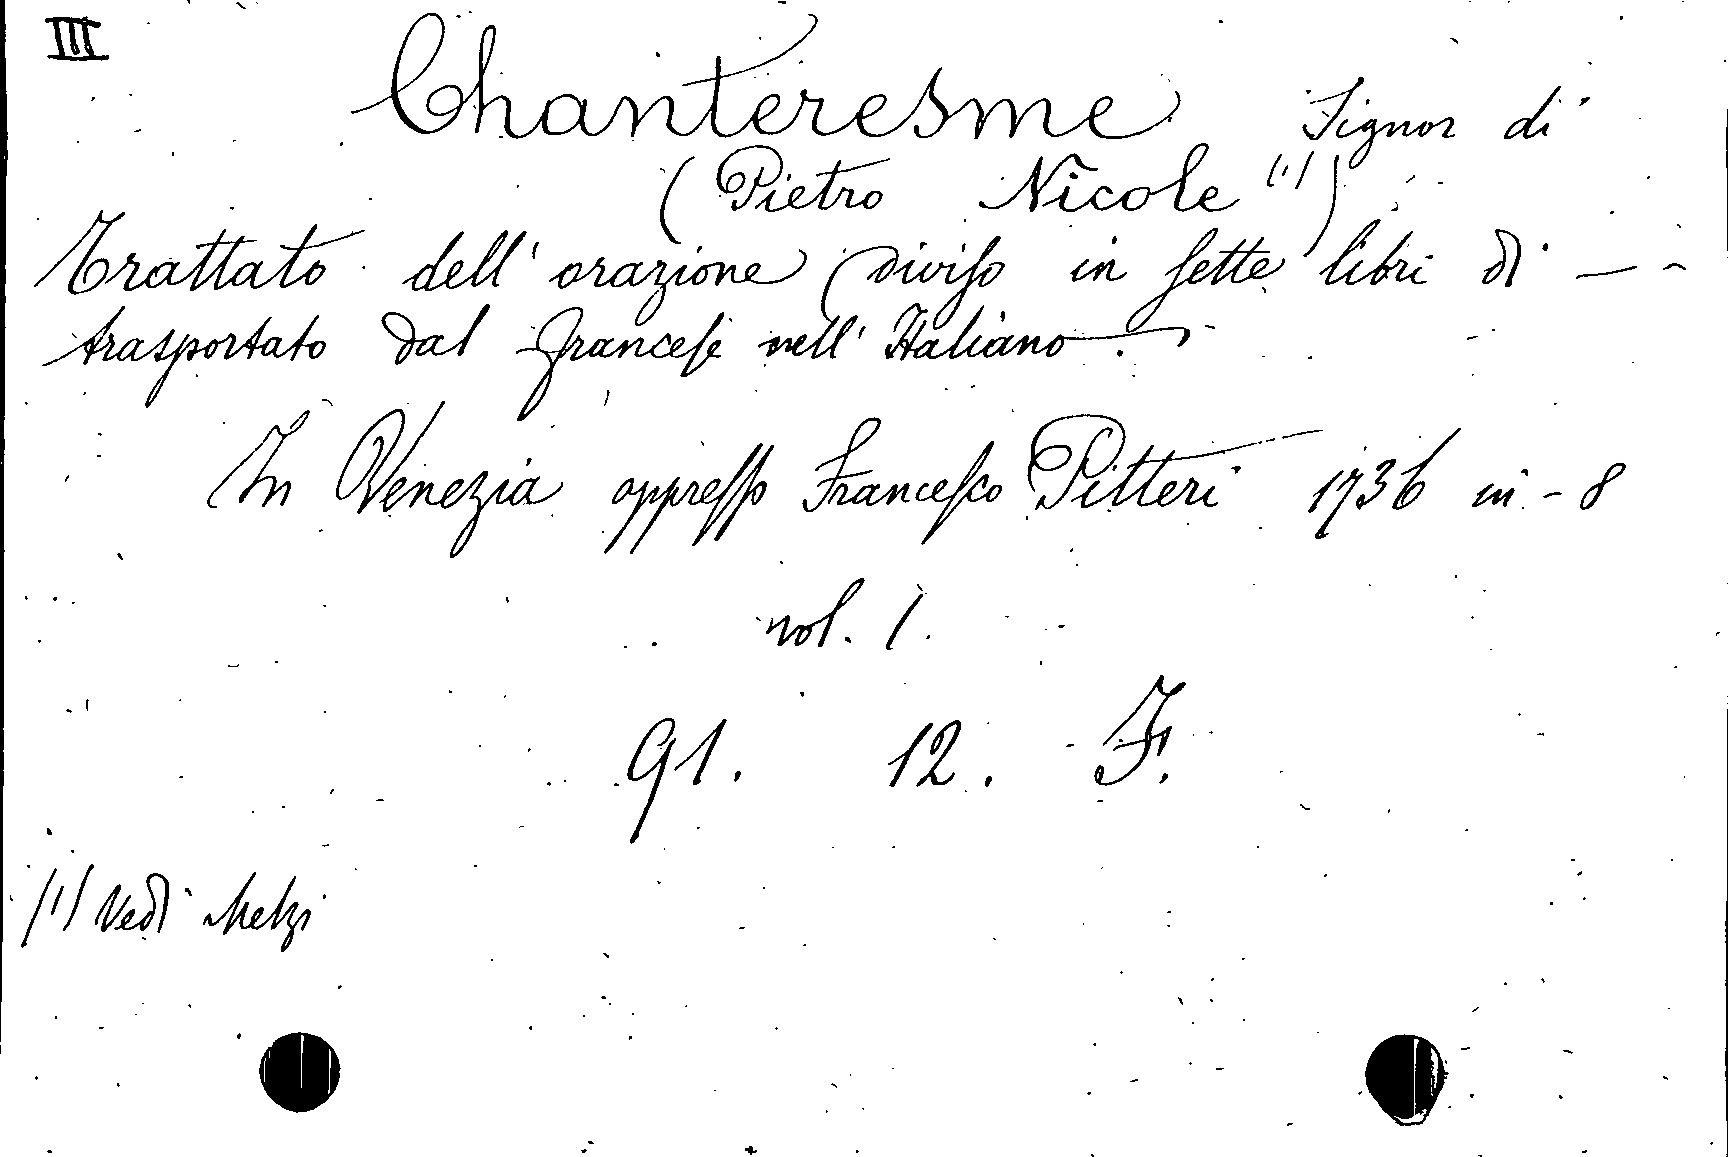 III
Chanteresme Signor di
(Pietro Nicole (1))
Trattato dell' orazione diviso in sette libri di — -
trasportato dal francese nell' Italiano.
In Venezia appresso Francesco Pitteri 1736 in-8
vol. 1.
91. 12. F.
(1) Vedi Melzi